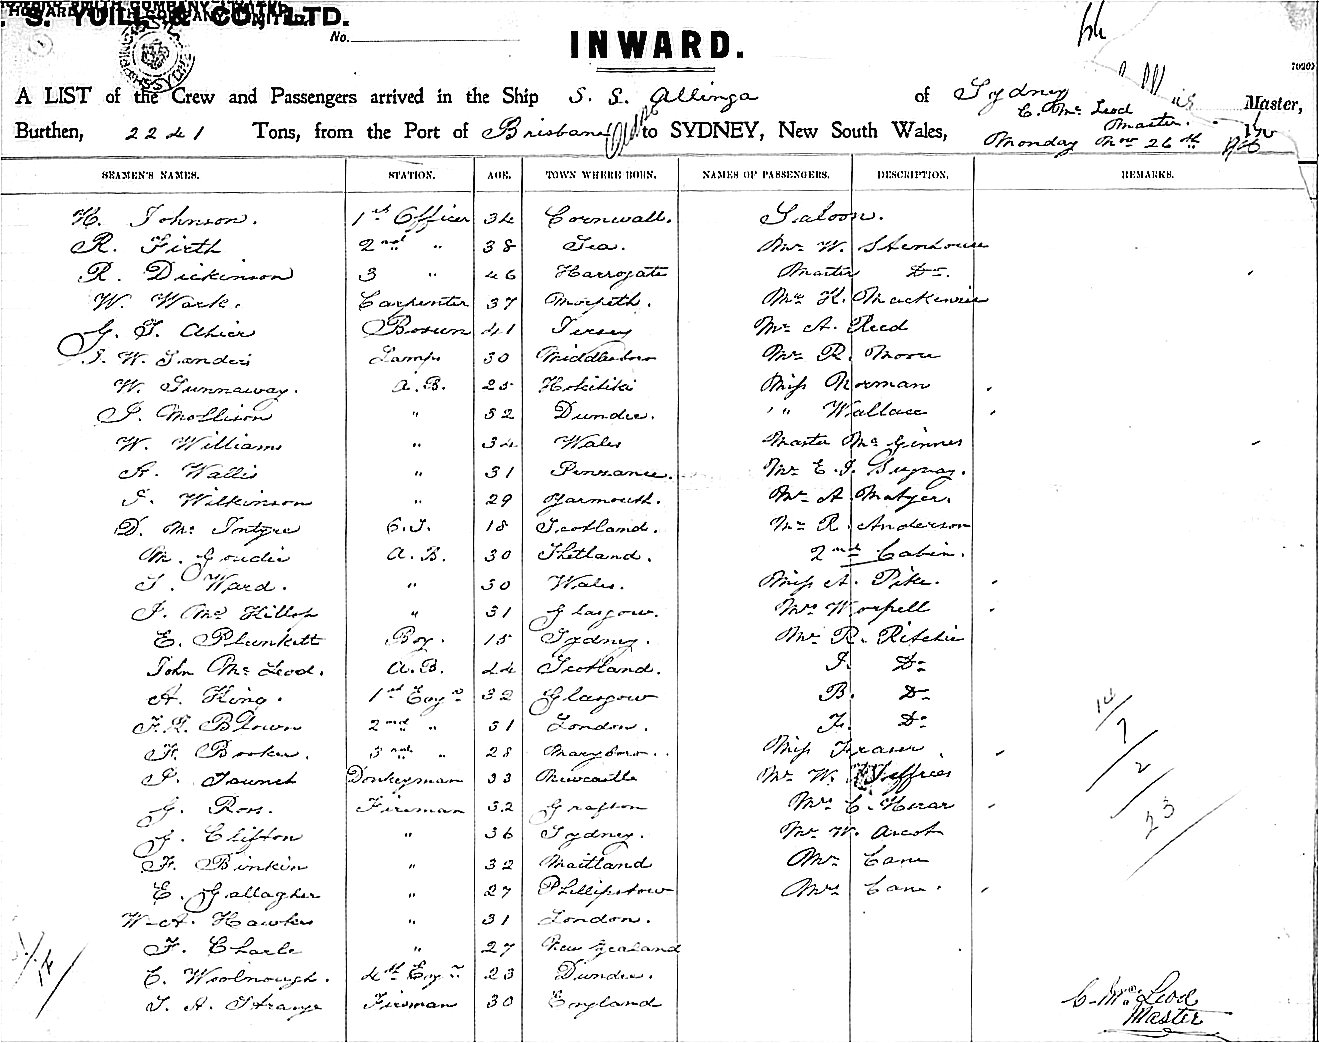 S. YUILL & CO. LTD.
No.
INWARD.
A LIST of the Crew and Passengers arrived in the Ship S. S. Allinga of Sydney C. Mc Leod Master, Master.
Burthen, 2241 Tons, from the Port of Brisbane to SYDNEY, New South Wales, Monday Nov 26th
SEAMEN'S NAMES. STATION. AGE. TOWN WHERE BORN. NAMES OF PASSENGERS. DESCRIPTION. REMARKS.
H. Johnson. 1st Officer 34 Cornwall. Saloon.
R. Firth 2nd " 38 Sea. Mr W. Stenhouse
R. Dickinson 3 " 46 Harrogate Master Do.
W. Wark. Carpenter 37 Morpeth. Mr H. Mackenzie
G. F. Ahier Bosun 41 Jersey Mr A. Reed
J. W. Sanders Lamps 30 Middlesboro Mr R. Moore
W. Tunnaway. A.B. 25 Hokitiki Miss Norman
J. Mollison " 32 Dundee. " Wallace
W. Williams " 34 Wales Master Mc Ginnes
A. Wallis " 31 Penzance. Mr E. J.
J. Wilkinson " 29 Yarmouth. Mr A
D. Mc Intyre O.S. 18 Scotland. Mr R. Anderson
M. Goudie A.B. 30 Shetland. 2nd Cabin.
J. Ward. " 30 Wales. Miss A. Pike.
J. Mc Killop " 31 Glasgow. Mrs Worpell
E. Plunkett Boy. 15 Sydney. Mr R. Ritchie
John Mc Leod. A.B. 24 Scotland. J. Do
A. King. 1st Engr 32 Glasgow B. Do
F. R. Blown 2nd " 31 London. F. Do
H. Booker. 3rd " 28 Maryboro. Miss Fraser
P. Taunch Donkeyman 33 Newcastle Mr W. Jeffries
G. Ross. Fireman 32 Grafton Mrs C.
G. Clifton " 36 Sydney. Mr W. Arcot
F. Binkin " 32 Maitland Mr Cane
E. Gallagher " 27 Phillipstow Mrs Cane.
W. A. Hawkes " 31 London.
F. Charle " 27 New Zealand
C. Woolnough. 4th Engr 23 Dundee.
J. A. Strange Fireman 30 England
14
7
2
23
C. Mc Leod
Master